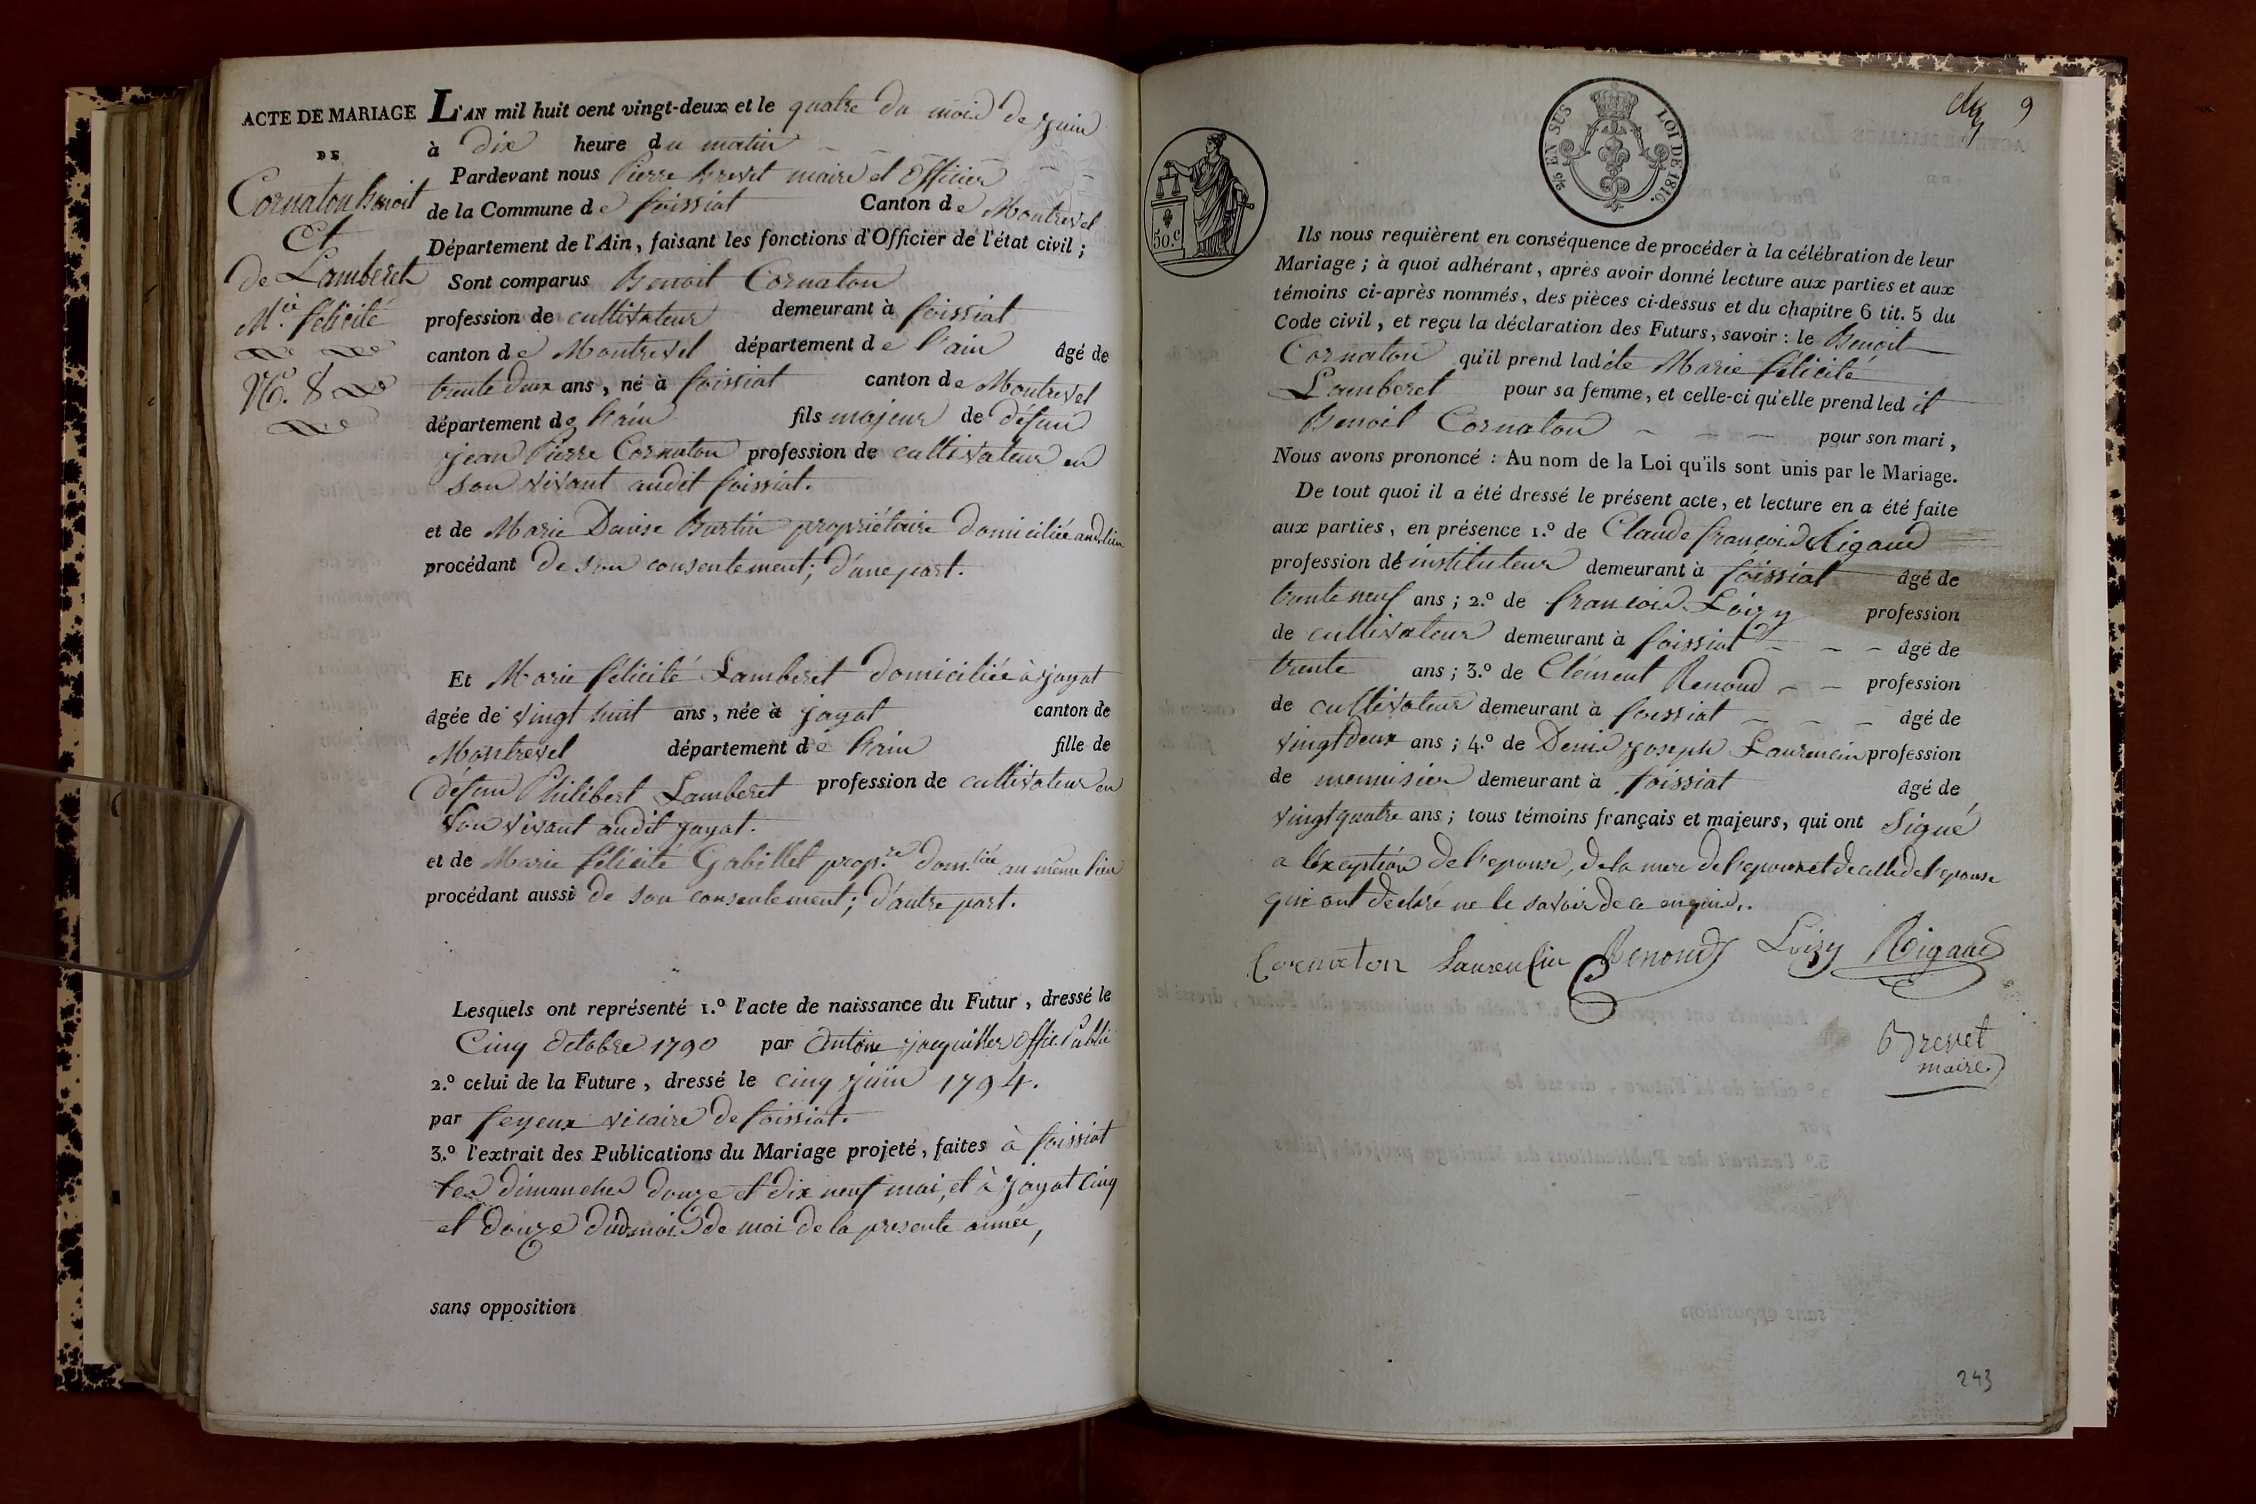 ACTE DE MARIAGE
DE
Cornaton Benoit
Et
de Lamberet
M.ie félicité
N.o 8
L'AN mil huit cent vingt-deux et le quatre du mois de juin
à dix heure du matin
Pardevant nous Pierre Brevet maire et Officier
de la Commune de foissiat Canton de Montrevel
Département de l'Ain, faisant les fonctions d'Officier de l'état civil ;
Sont comparus Benoit Cornaton
profession de cultivateur demeurant à foissiat
canton de Montrevel département de l'ain âgé de
trente deux ans, né à foissiat canton de Montrevel
département de l'ain fils majeur de défun
jean Pierre Cornaton profession de cultivateur en
son vivant audit foissiat.
et de Marie Danise Burtin propriétaire domiciliée aud. lieu
procédant de son consentement; d'une part.
Et Marie félicité Lamberet domiciliée à jayat
âgée de vingt huit ans, née à jayat canton de
Montrevel département de l'ain fille de
défun Philibert Lamberet profession de cultivateur en
son vivant audit jayat.
et de Marie félicité Gabillet prop.re dom.liée au même lieu
procédant aussi de son consentement; d'autre part.
Lesquels ont représenté 1.º l'acte de naissance du Futur, dressé le
Cinq Octobre 1790 par Antoine Offic. Public
2.º celui de la Future, dressé le cinq juin 1794.
par feyeux vicaire de foissiat.
3.º l'extrait des Publications du Mariage projeté, faites à foissiat
les dimanches douze et dix neuf mai, et à jayat Cinq
et douze dud. mois de mai de la presente année,
sans opposition
9
50.c
EN SUS
LOI DE 1816.
Ils nous requièrent en conséquence de procéder à la célébration de leur
Mariage ; à quoi adhérant, après avoir donné lecture aux parties et aux
témoins ci-après nommés, des pièces ci-dessus et du chapitre 6 tit. 5 du
Code civil, et reçu la déclaration des Futurs, savoir : le Benoit
Cornaton qu'il prend ladite Marie félicité
Lamberet pour sa femme, et celle-ci qu'elle prend led it
Benoit Cornaton pour son mari,
Nous avons prononcé : Au nom de la Loi qu'ils sont unis par le Mariage.
De tout quoi il a été dressé le présent acte, et lecture en a été faite
aux parties, en présence 1.º de Claude françois Rigaud
profession de instituteur demeurant à foissiat âgé de
trente neuf ans ; 2.º de francois Loizy profession
de cultivateur demeurant à foissiat âgé de
trente ans ; 3.º de Clément Renoud profession
de cultivateur demeurant à foissiat âgé de
vingt deux ans ; 4.º de Denis joseph Laurencin profession
de menuisier demeurant à foissiat âgé de
vingt quatre ans ; tous témoins français et majeurs, qui ont signé
a l'exception de l'epouse, de la mere de l'epoux et de celle de l'epouse
qui ont declaré ne le savoir de ce enquis..
Cornaton Laurencin Renoud Loizy Rigaud
Brevet
maire
243